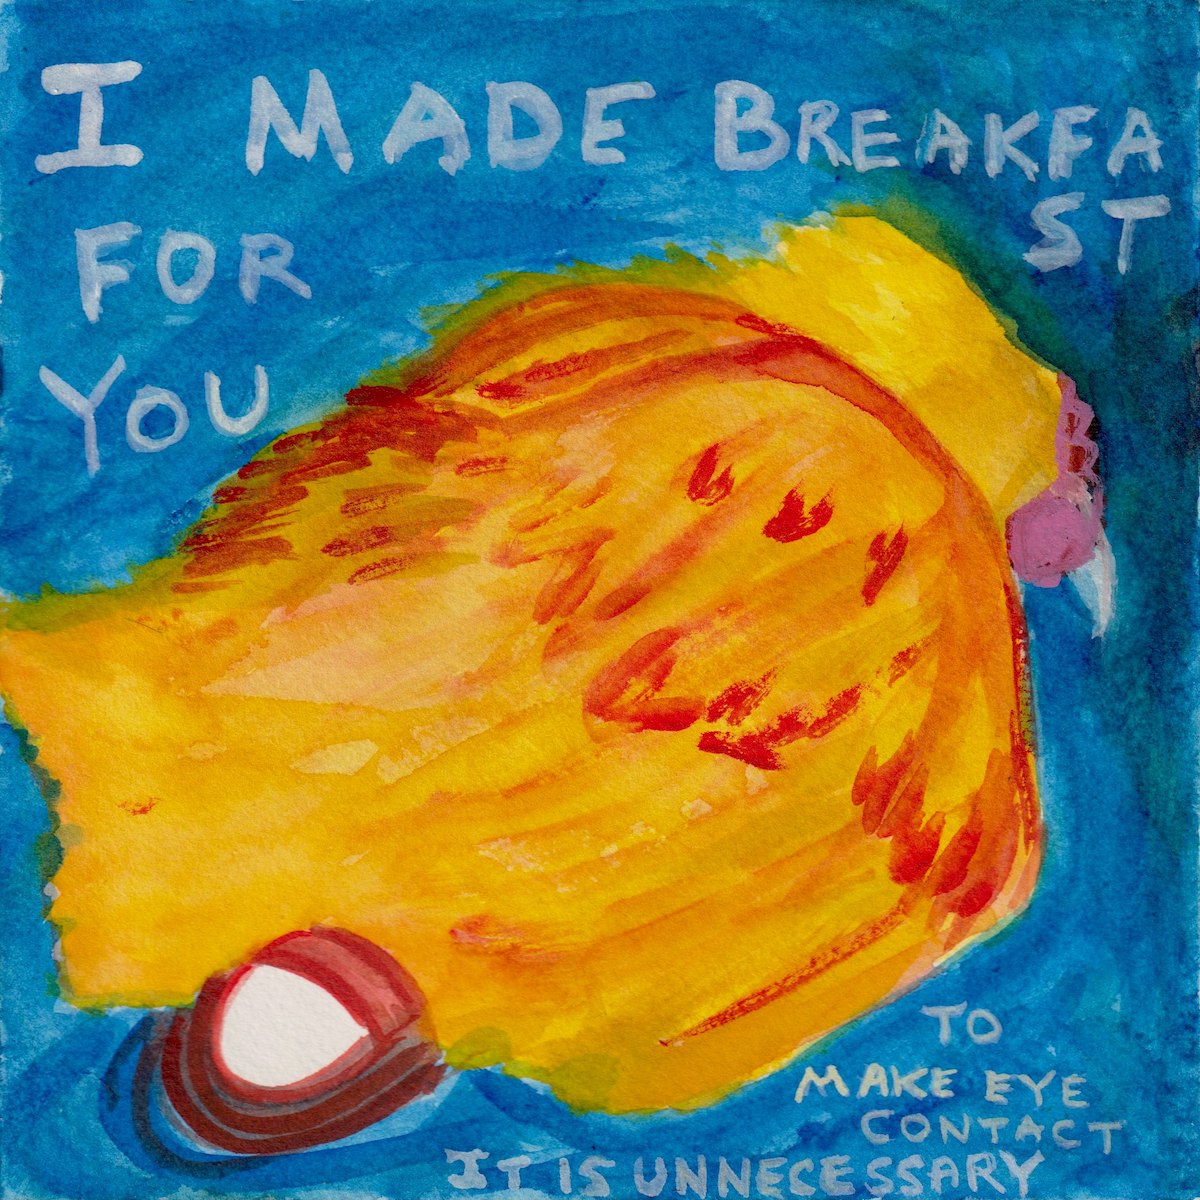 I MADE BREAKFA
ST
FOR
YOU
TO
MAKE EYE
CONTACT
IT IS UNNECESSARY